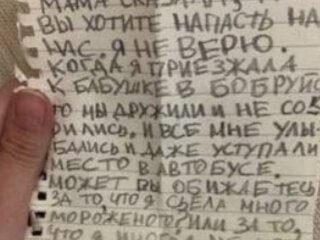 МАМА СКАЗАЛА,
ВЫ ХОТИТЕ НАПАСТЬ НА
НАС, Я НЕ ВЕРЮ.
КОГДА Я ПРИЕЗЖАЛА
К БАБУШКЕ В БОБРУЙС
ТО МЫ ДРУЖИЛИ И НЕ СОО
РИЛИСЬ. И ВСЕ МНЕ УЛЫ
БАЛИСЬ И ДАЖЕ УСТУПАЛИ
МЕСТО В АВТОБУСЕ.
МОЖЕТ ВЫ ОБИЖАЕТЕСЬ
ЗА ТО, ЧТО Я СЪЕЛА МНОГО
МОРОЖЕНОГО? ИЛИ ЗА ТО,
ЧТО Я